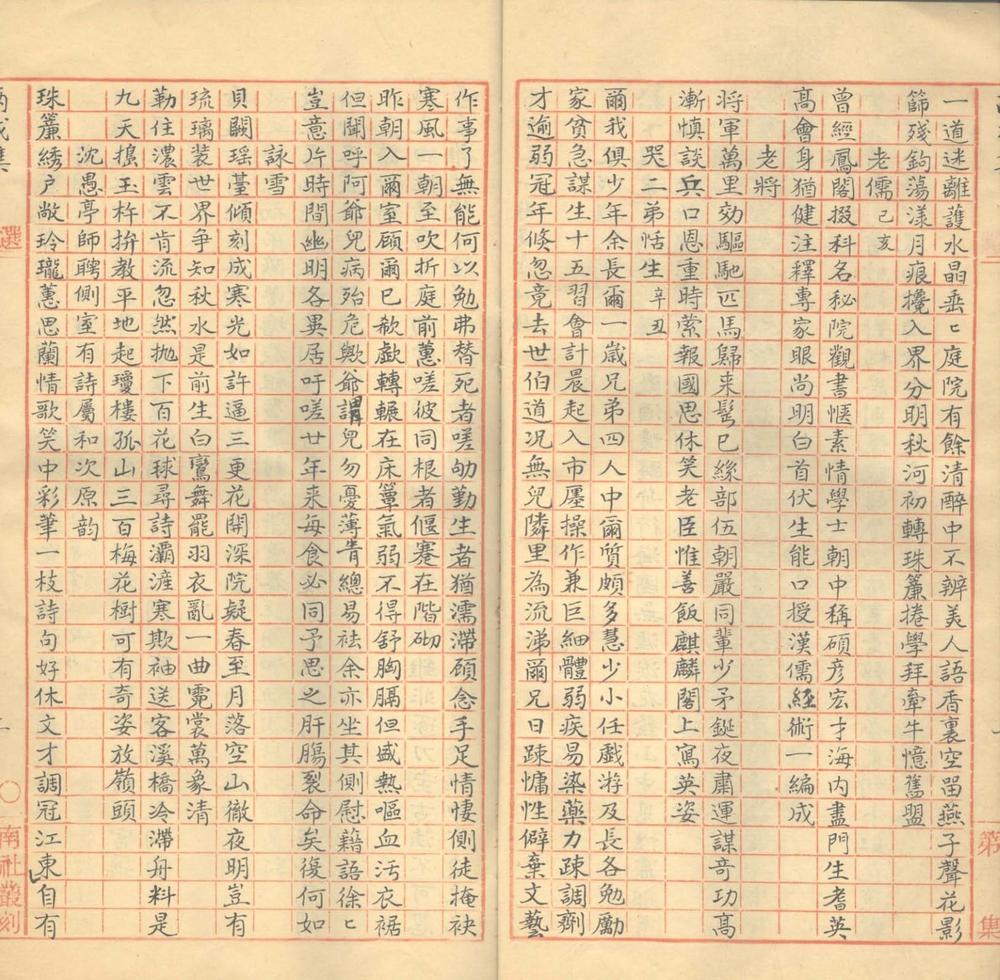 一道迷離護水晶垂〻庭院有餘清醉中不辨美人語香裏空留燕子聲花影
篩殘鈎蕩漾月痕攪入界分明秋河初轉珠簾捲學拜牽牛憶舊盟
老儒己亥
曾經鳳閣掇科名秘院觀書愜素情學士朝中稱碩彥宏才海内盡門生耆英
高會身猶健注釋專家眼尚明白首伏生能口授漢儒經術一編成
老將
將軍萬里効驅馳匹馬歸来髩已絲部伍朝嚴同輩少矛鋋夜肅運謀奇功高
漸慎談兵口恩重時縈報國思休笑老臣惟善飯麒麟閣上寫英姿
哭二弟恬生辛丑
爾我俱少年余長爾一歲兄弟四人中爾質頗多慧少小任戲游及長各勉勵
家貧急謀生十五習會計晨起入市廛操作兼巨細體弱疾易染藥力疎調劑
才逾弱冠年倐忽竟去世伯道况無兒隣里為流涕爾兄日疎慵性僻棄文藝
作事了無能何以勉弗替死者嗟劬勤生者猶濡滯碩念手足情悽側徒掩袂
寒風一朝至吹折庭前蕙嗟彼同根者偃蹇在階砌
昨朝入爾室顧爾已欷歔轉輾在床簟氣弱不得舒胸膈但盛熱嘔血污衣裾
但聞呼阿爺兒病殆危歟爺謂兒勿憂薄眚總易祛余亦坐其側慰藉語徐〻
豈意片時間幽明各異居吁嗟廿年来每食必同予思之肝腸裂命矣復何如
詠雪
貝闕瑶臺傾刻成寒光如許逼三更花開深院疑春至月落空山徹夜明豈有
琉璃装世界争知秋水是前生白鸞舞罷羽衣亂一曲霓裳萬象清
勒住濃雲不肯流忽然抛下百花球尋詩灞滻寒欺袖送客溪橋冷滯舟料是
九天搗玉杵拚教平地起瓊樓孤山三百梅花樹可有奇姿放嶺頭
沈愚亭師聘側室有詩屬和次原韵
珠簾綉户敞玲瓏蕙思蘭情歌笑中彩筆一枝詩句好休文才調冠江東自有
選
南社叢刻
第
集